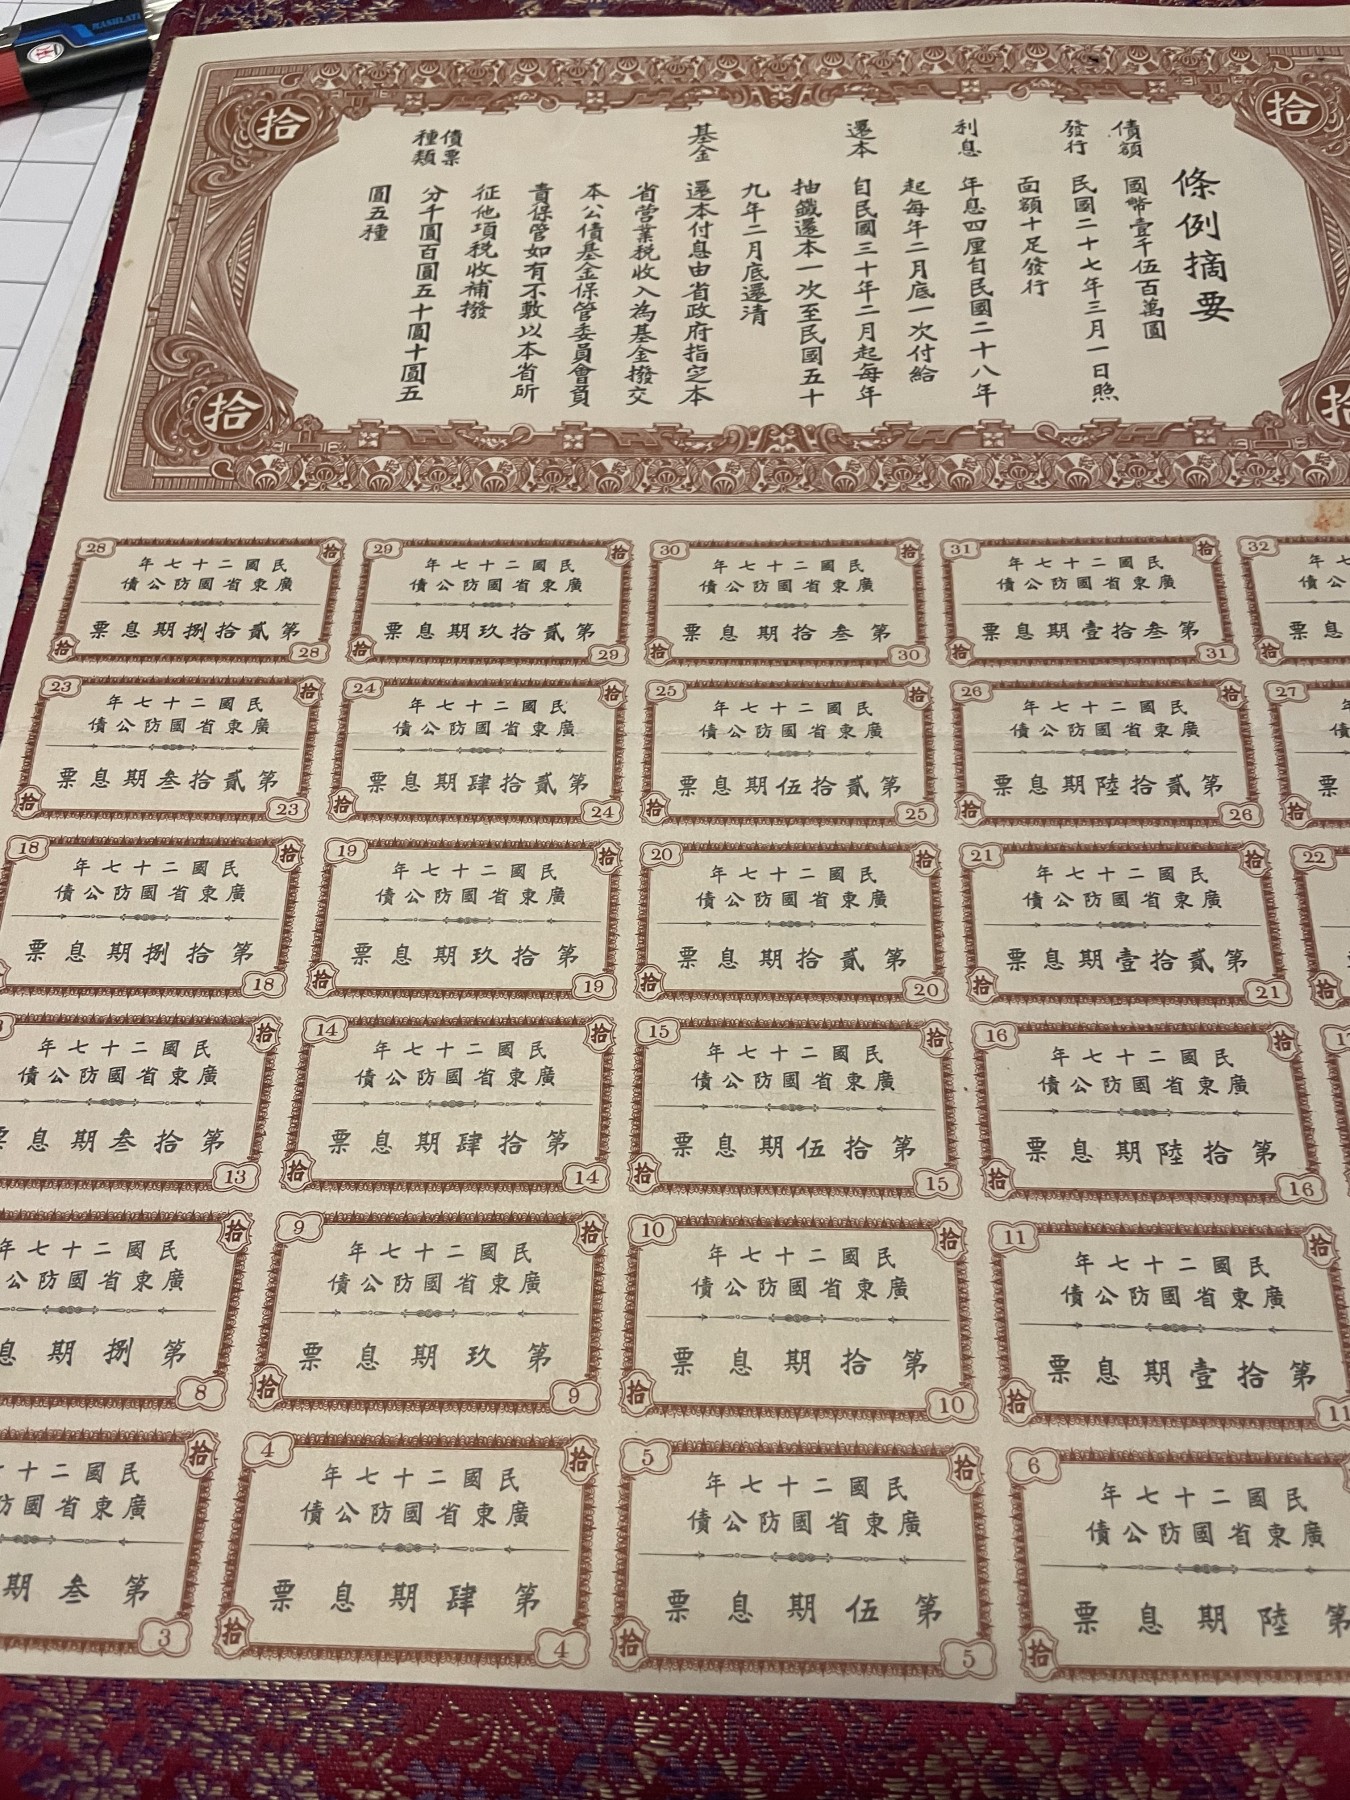 HASHLATI
拾
拾
條例摘要
債額
國幣壹千伍百萬圓
發行
民國二十七年三月一日照
面額十足發行
利息
年息四厘自民國二十八年
起每年二月底一次付給
還本
自民國三十年二月起每年
抽籤還本一次至民國五十
九年二月底還清
基金
還本付息由省政府指定本
省營業稅收入為基金撥交
本公債基金保管委員會負
責保管如有不敷以本省所
征他項稅收補撥
債票
種類
分千圓百圓五十圓十圓五
圓五種
拾
拾
28 拾
年七十二國民
債公防國省東廣
票息期捌拾貳第
拾 28
29 拾
年七十二國民
債公防國省東廣
票息期玖拾貳第
拾 29
30 拾
年七十二國民
債公防國省東廣
票息期拾叁第
拾 30
31 拾
年七十二國民
債公防國省東廣
票息期壹拾叁第
拾 31
32
年七
債公
票息
拾
23 拾
年七十二國民
債公防國省東廣
票息期叁拾貳第
拾 23
24 拾
年七十二國民
債公防國省東廣
票息期肆拾貳第
拾 24
25 拾
年七十二國民
債公防國省東廣
票息期伍拾貳第
拾 25
26 拾
年七十二國民
債公防國省東廣
票息期陸拾貳第
拾 26
27
年
債
票
拾
18 拾
年七十二國民
債公防國省東廣
票息期捌拾第
18
19 拾
年七十二國民
債公防國省東廣
票息期玖拾第
拾 19
20 拾
年七十二國民
債公防國省東廣
票息期拾貳第
拾 20
21 拾
年七十二國民
債公防國省東廣
票息期壹拾貳第
拾 21
22
拾
拾
年七十二國民
債公防國省東廣
票息期叁拾第
13
14 拾
年七十二國民
債公防國省東廣
票息期肆拾第
拾 14
15 拾
年七十二國民
債公防國省東廣
票息期伍拾第
拾 15
16 拾
年七十二國民
債公防國省東廣
票息期陸拾第
拾 16
拾
年七十二國民
公防國省東廣
息期捌第
8
9 拾
年七十二國民
債公防國省東廣
票息期玖第
拾 9
10 拾
年七十二國民
債公防國省東廣
票息期拾第
拾 10
11 拾
年七十二國民
債公防國省東廣
票息期壹拾第
拾 11
拾
十二國民
防國省東廣
期叁第
3
4 拾
年七十二國民
債公防國省東廣
票息期肆第
拾 4
5 拾
年七十二國民
債公防國省東廣
票息期伍第
拾 5
6
年七十二國民
債公防國省東廣
票息期陸第
拾